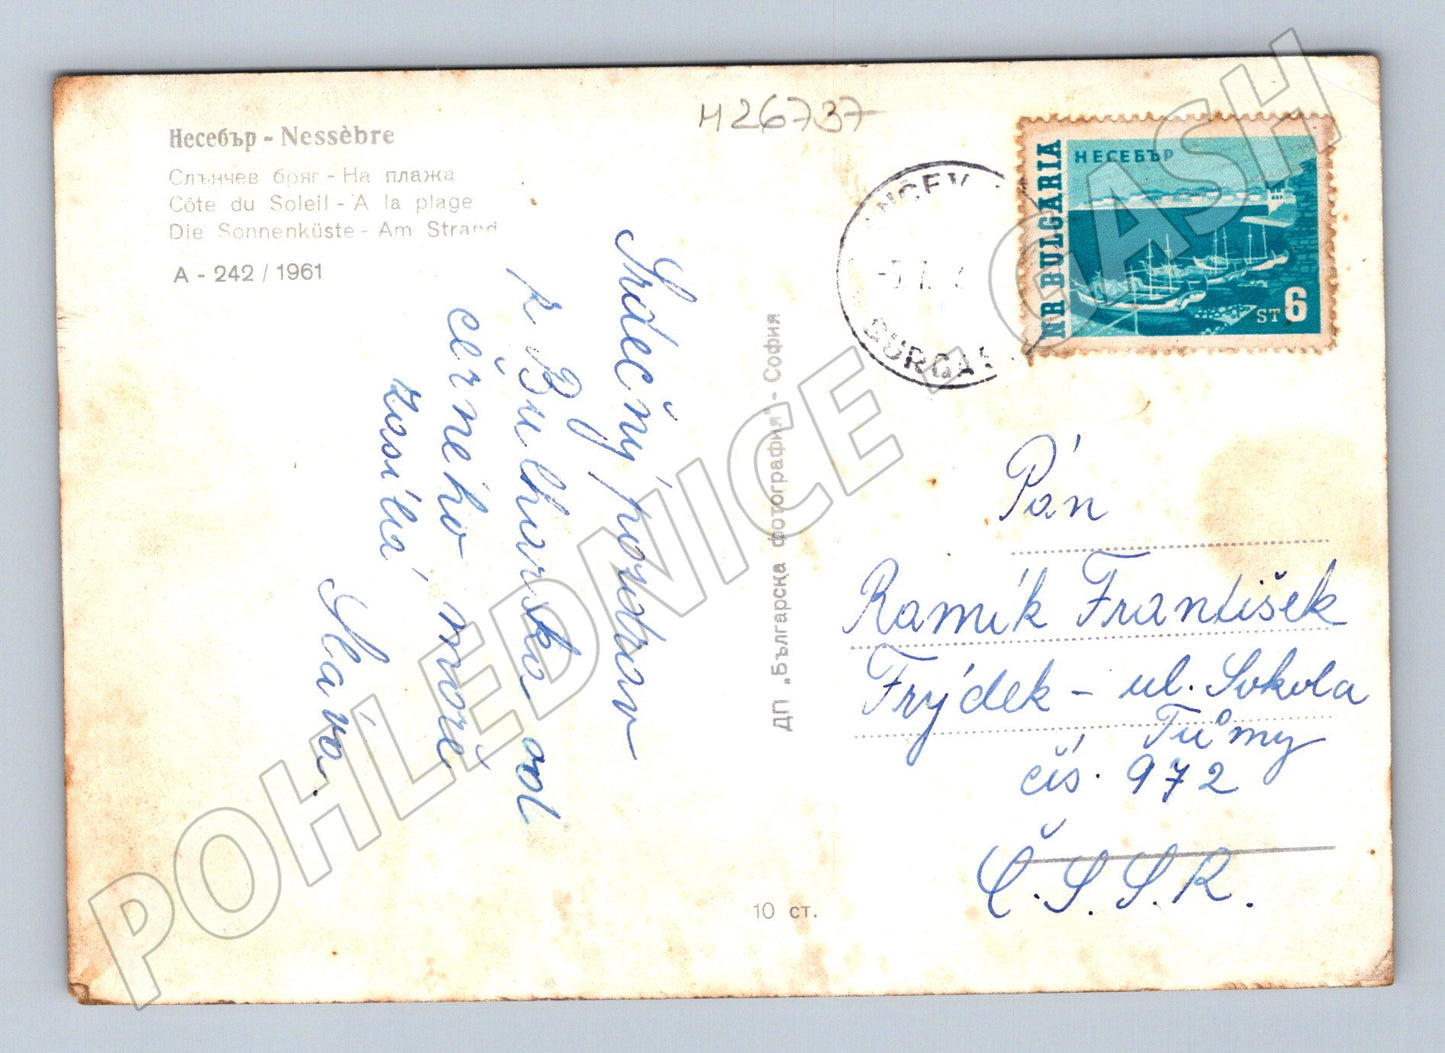 H26737
Несебър - Nessèbre
Слънчев бряг - На плажа
Côte du Soleil - A la plage
Die Sonnenküste - Am Strand
A - 242 / 1961
Srdečný pozdrav
z Bulharska od
černého moře
zasílá
Sláva.
ДП „Българска фотография" - София
10 ст.
BURGAS
НЕСЕБЪР
NR BULGARIA
ST 6
Pán
Ramík František
Frýdek - ul. Sokola
Tůmy
čís. 972
Č.S.S.R.
POHLEDNICE - GASH